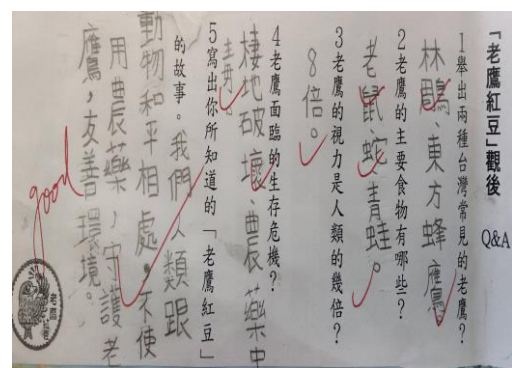 「老鷹紅豆」觀後 Q&A
1舉出兩種台灣常見的老鷹？
林鵰、東方蜂鷹
2老鷹的主要食物有哪些？
老鼠、蛇、青蛙。
3老鷹的視力是人類的幾倍？
8倍。
4老鷹面臨的生存危機？
棲地破壞、農藥中
毒。
5寫出你所知道的「老鷹紅豆」
的故事。我們人類跟
動物和平相處，不使
用農藥，守護老
鷹，友善環境。
good